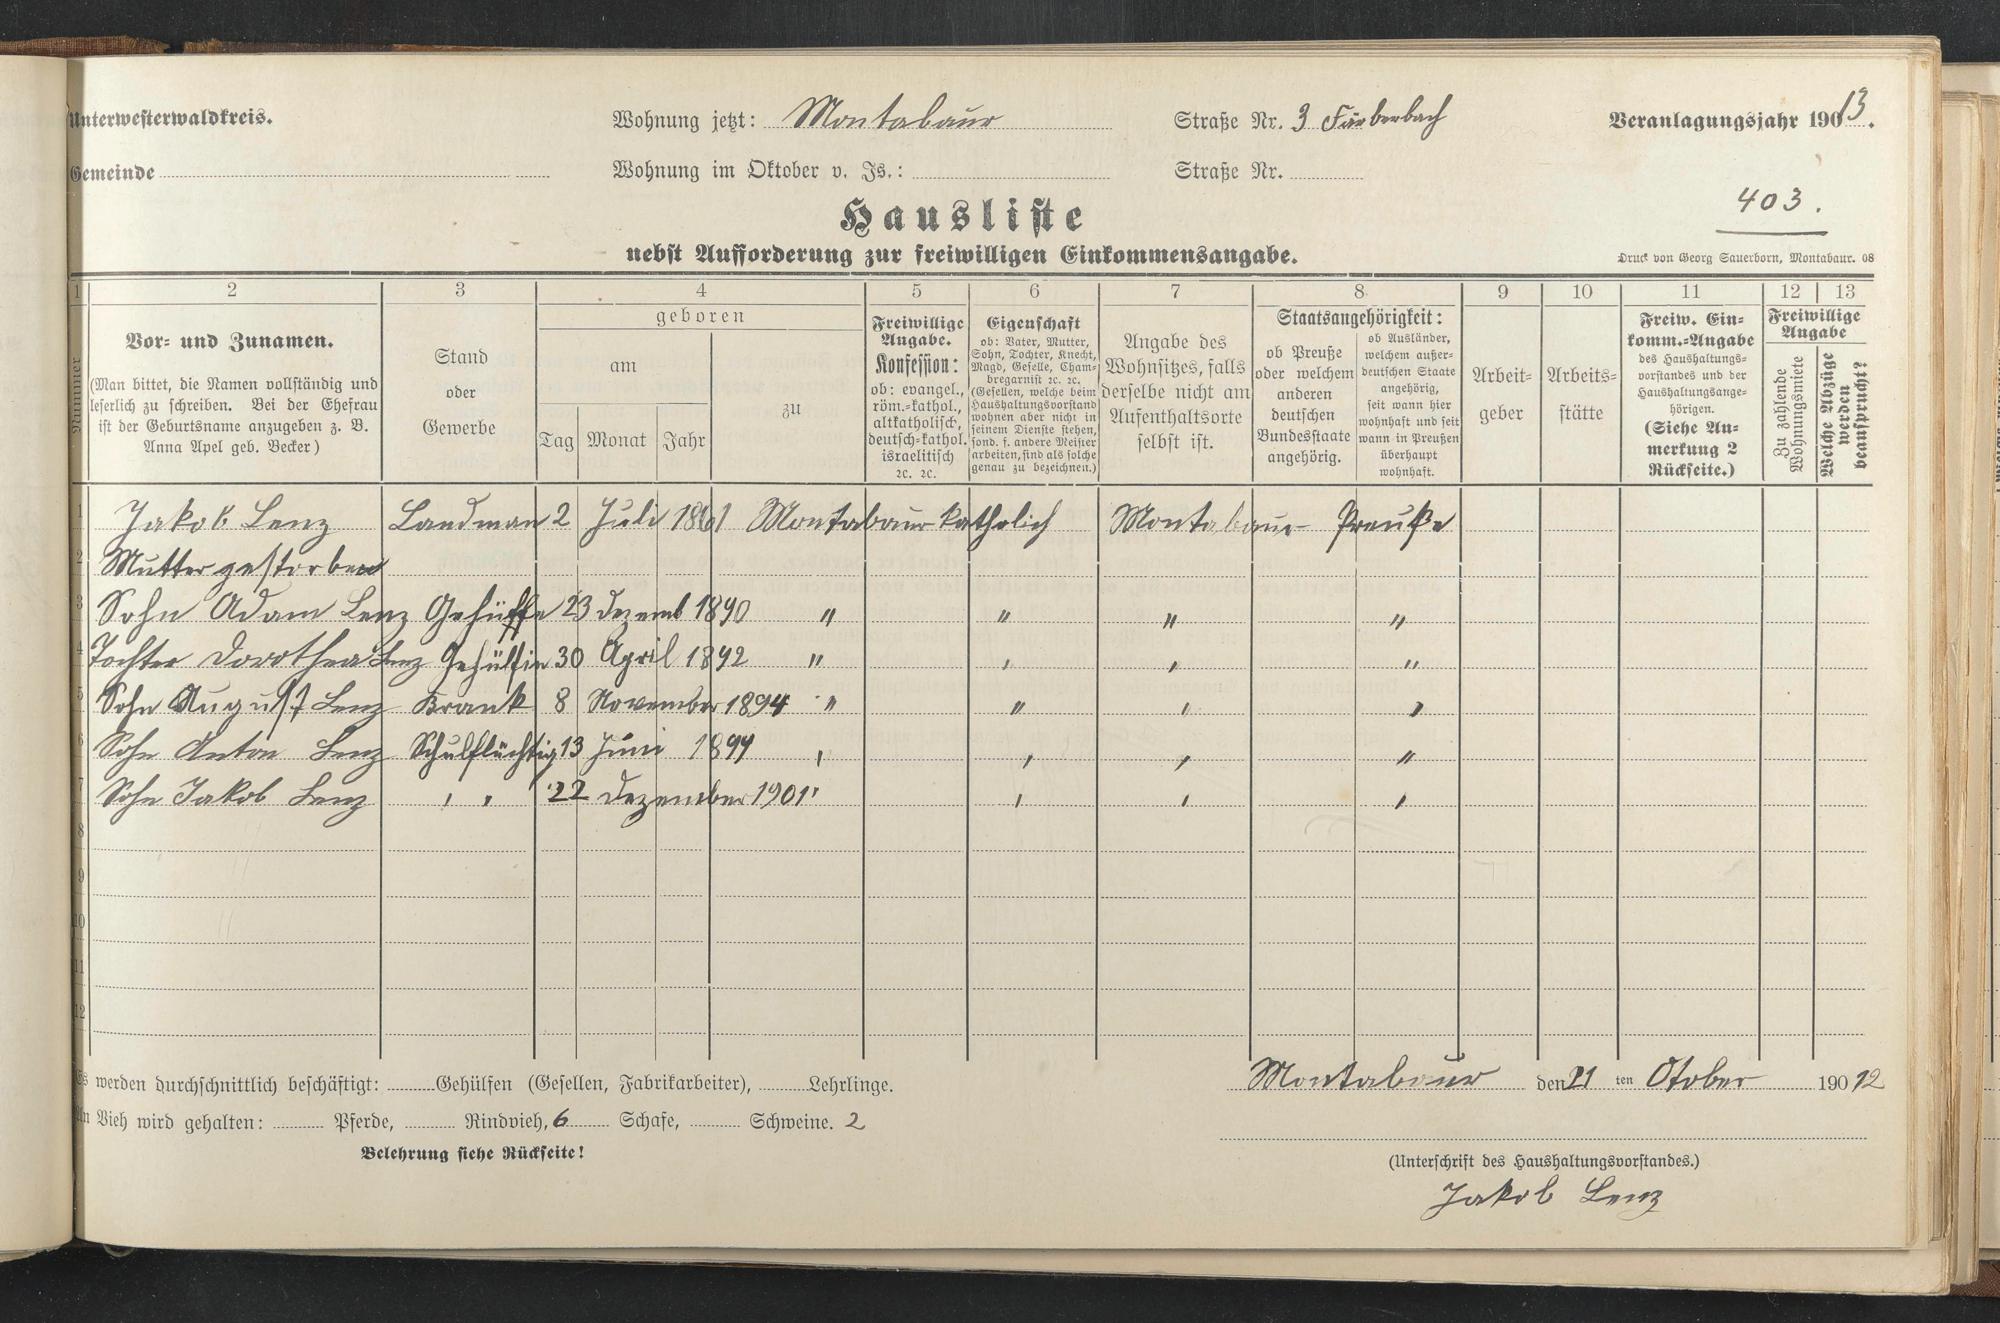 Unterwesterwaldkreis.
Wohnung jetzt: Montabaur
Straße Nr. 3 Färberbach
Veranlagungsjahr 190 13.
Gemeinde
Wohnung im Oktober v. Js.:
Straße Nr.
403.
Hausliste
nebst Aufforderung zur freiwilligen Einkommensangabe.
Druck von Georg Sauerborn, Montabaur. 08
1 2 3 4 5 6 7 8 9 10 11 12 13
Nummer
Vor- und Zunamen.
(Man bittet, die Namen vollständig und
leserlich zu schreiben. Bei der Ehefrau
ist der Geburtsname anzugeben z. B.
Anna Apel geb. Becker)
Stand
oder
Gewerbe
geboren
am
Tag Monat Jahr
zu
Freiwillige
Angabe.
Konfession:
ob: evangel.,
röm.=kathol.,
altkatholisch,
deutsch=kathol.
israelitisch
2c. 2c.
Eigenschaft
ob: Vater, Mutter,
Sohn, Tochter, Knecht,
Magd, Geselle, Cham-
bregarnist 2c. 2c.
(Gesellen, welche beim
Haushaltungsvorstand
wohnen aber nicht in
seinem Dienste stehen,
sond. f. andere Meister
arbeiten, sind als solche
genau zu bezeichnen.)
Angabe des
Wohnsitzes, falls
derselbe nicht am
Aufenthaltsorte
selbst ist.
Staatsangehörigkeit:
ob Preuße
oder welchem
anderen
deutschen
Bundesstaate
angehörig.
ob Ausländer,
welchem außer-
deutschen Staate
angehörig,
seit wann hier
wohnhaft und seit
wann in Preußen
überhaupt
wohnhaft.
Arbeit-
geber
Arbeits-
stätte
Freiw. Ein-
komm.=Angabe
des Haushaltungs-
vorstandes und der
Haushaltungsange-
hörigen.
(Siehe An-
merkung 2
Rückseite.)
Freiwillige
Angabe
Zu zahlende
Wohnungsmiete
Welche Abzüge
werden
beansprucht?
1 Jakob Lenz Landman 2 Juli 1861 Montabaur katholich Montabaur Preuße
2 Mutter gestorben
3 Sohn Adam Lenz Gehülfe 23 dezemb 1890 " " " "
4 Tochter Dorothea Lenz Gehülfin 30 April 1892 " " " "
5 Sohn August Lenz Krank 8 November 1894 " " " "
6 Sohn Anton Lenz Schulflüchtig 13 Juni 1899 " " " "
7 Sohn Jakob Lenz " " 22 Dezember 1901 " " " "
8
9
10
11
12
Es werden durchschnittlich beschäftigt: Gehülfen (Gesellen, Fabrikarbeiter), Lehrlinge.
Montabaur den 21 ten Otober 190 12
An Vieh wird gehalten: Pferde, Rindvieh, 6 Schafe, Schweine. 2
Belehrung siehe Rückseite!
(Unterschrift des Haushaltungsvorstandes.)
Jakob Lenz